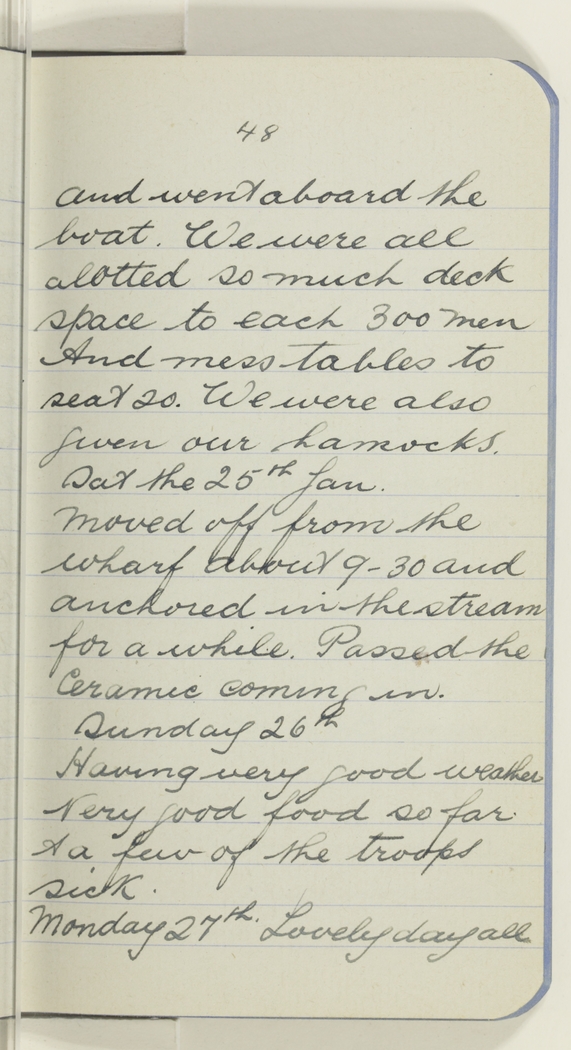 48
and went aboard the
boat. We were all
alotted so much deck
space to each 300 men
And mess tables to
seat 20. We were also
given our hamocks.
Sat the 25th Jan.
Moved off from the
wharf about 9-30 and
anchored in the stream
for a while. Passed the
Ceramic coming in.
Sunday 26th
Having very good weather
Very good food so far.
& a few of the troops
sick.
Monday 27th. Lovely day all